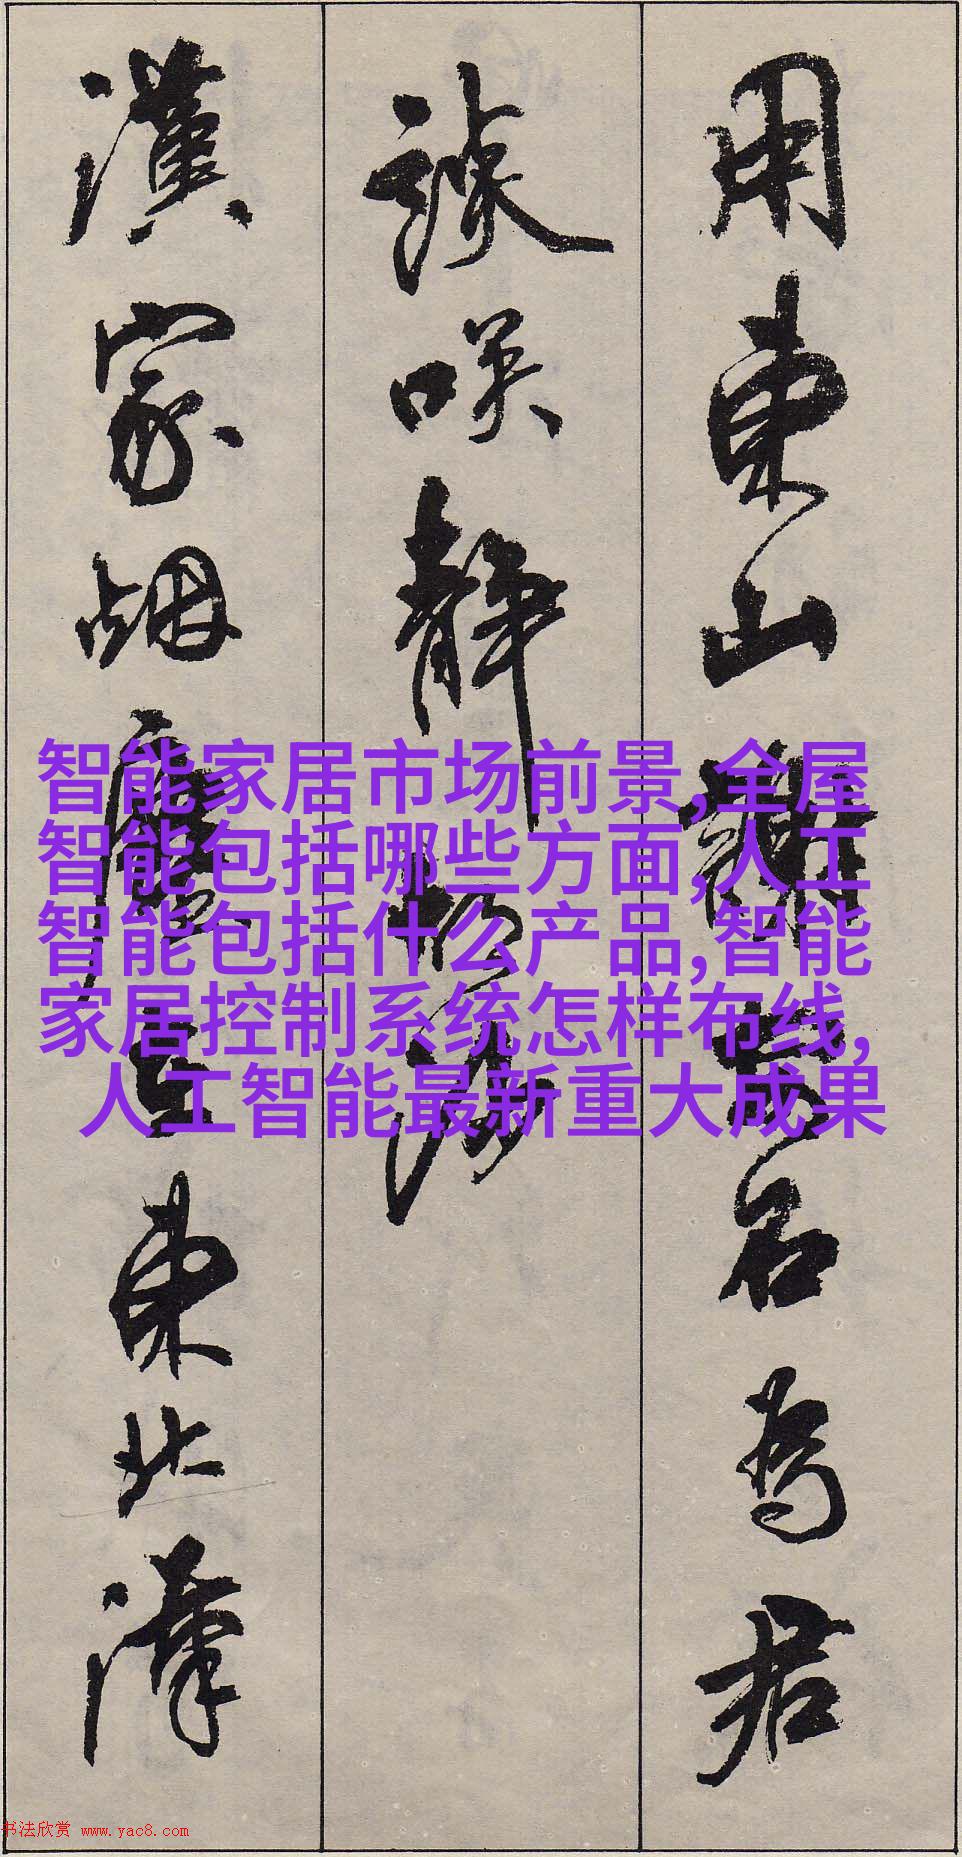 用東山謝安石為君
談笑靜胡沙
漢家烟塵在東北漢
智能家居市场前景,全屋
智能包括哪些方面,人工
智能包括什么产品,智能
家居控制系统怎样布线,
人工智能最新重大成果
书法欣赏 www.yac8.com